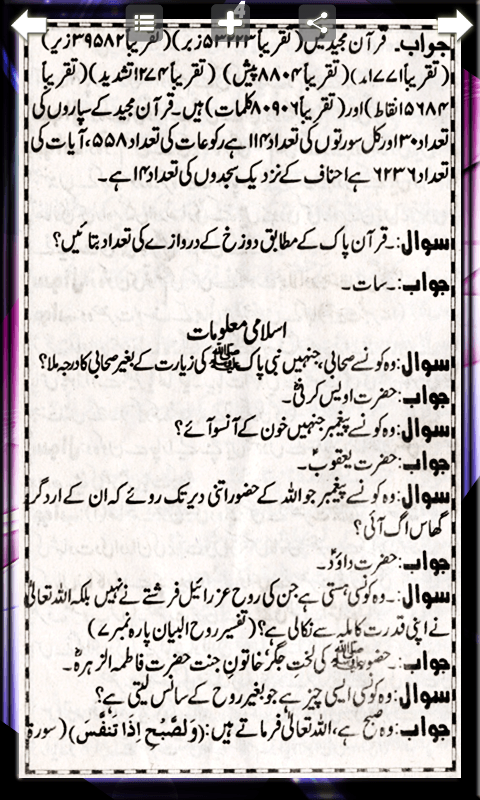 جواب۔ قرآن مجید میں (تقریباً ۵۳۲۲۳ زبر) (تقریباً ۳۹۵۸۲ زیر)
(تقریباً ۱۷۷۱ مد) (تقریباً ۸۸۰۴ پیش) (تقریباً ۱۲۷۴ تشدید) (تقریباً
۱۰۵۶۸۴ نقاط) اور (تقریباً ۸۰۹۰۶ کلمات) ہیں۔ قرآن مجید کے سپاروں کی
تعداد ۳۰ اور کل سورتوں کی تعداد ۱۱۴ ہے رکوعات کی تعداد ۵۵۸، آیات کی
تعداد ۶۲۳۶ ہے احناف کے نزدیک سجدوں کی تعداد ۱۴ ہے۔
سوال:۔ قرآن پاک کے مطابق دوزخ کے دروازے کی تعداد بتائیں؟
جواب:۔ سات۔
اسلامی معلومات
سوال: وہ کونسے صحابی، جنہیں نبی پاک ﷺ کی زیارت کے بغیر صحابی کا درجہ ملا؟
جواب: حضرت اویس کرنیؓ۔
سوال: وہ کونسے پیغمبر جنہیں خون کے آنسو آئے؟
جواب: حضرت یعقوبؑ۔
سوال: وہ کونسے پیغمبر جو اللہ کے حضور اتنی دیر تک روئے کہ ان کے اردگرد
گھاس اگ آئی؟
جواب: حضرت داؤدؑ۔
سوال:۔ وہ کونسی ہستی ہے جن کی روح عزرائیل فرشتے نے نہیں بلکہ اللہ تعالیٰ
نے اپنی قدرت کاملہ سے نکالی ہے؟ (تفسیر روح البیان پارہ نمبر ۷)
جواب:۔ حضور ﷺ کی لخت جگر خاتون جنت حضرت فاطمہ الزہرہؓ۔
سوال: وہ کونسی ایسی چیز ہے جو بغیر روح کے سانس لیتی ہے؟
جواب: وہ صبح ہے، اللہ تعالیٰ فرماتے ہیں: (وَالصُّبْحِ اِذَا تَنَفَّسَ) (سورۃ